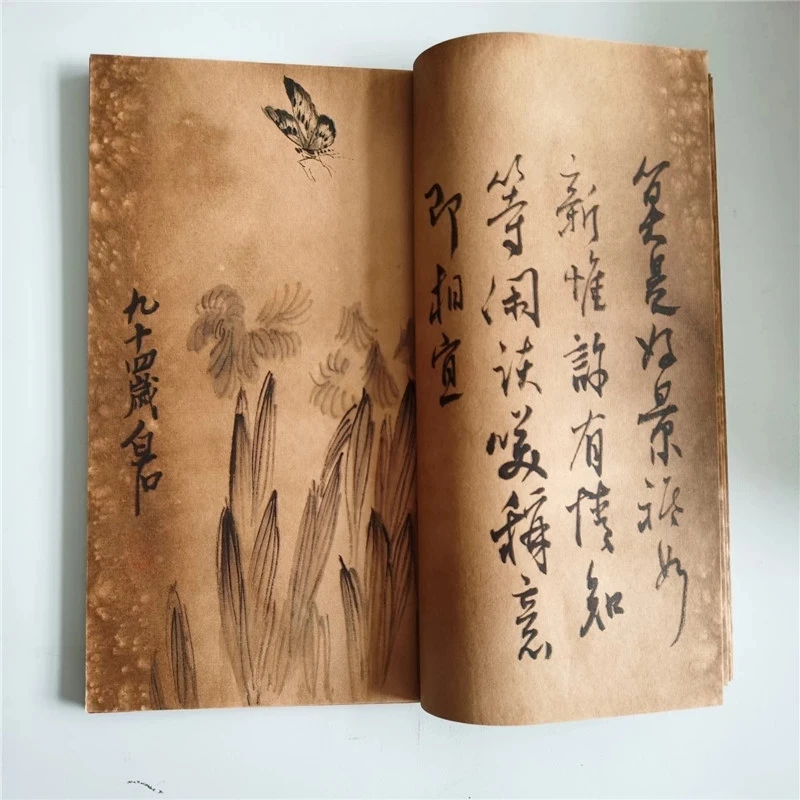 算是好景祗如
斯惟許有情知
等閑談笑稱意
即相宜
九十四歲白石